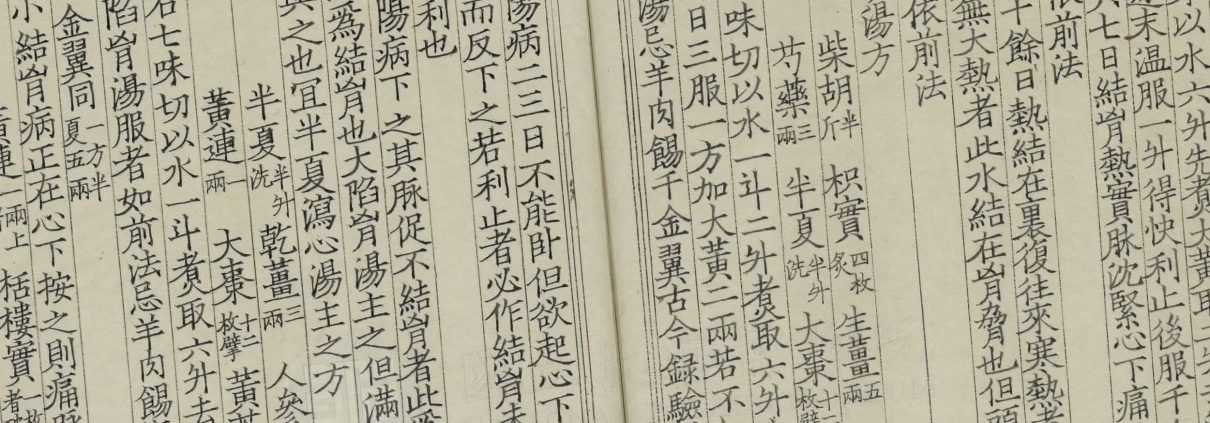 以水六升先煮大黃取二升
末温服一升得快利止後服千
七日結胷熱實脉沈緊心下痛
依前法
十餘日熱結在裏復往來寒熱者
無大熱者此水結在胷脅也但頭
依前法
湯方
柴胡半斤 枳實四枚炙 生薑五兩
芍藥三兩 半夏半升洗 大棗十二枚擘
味切以水一斗二升煮取六升
日三服一方加大黃二兩若不
湯忌羊肉餳千金翼古今録驗
陽病二三日不能卧但欲起心下
而反下之若利止者必作結胷未
利也
陽病下之其脉促不結胷者此爲
爲結胷也大陷胷湯主之但滿
與之也宜半夏瀉心湯主之方
半夏半升洗 乾薑三兩 人參
黃連一兩 大棗十二枚擘 黃芩
右七味切以水一斗煮取六升去
陷胷湯服者如前法忌羊肉餳
金翼同一方半夏五兩
小結胷病正在心下按之則痛脉
黃連一兩上 栝樓實一枚者